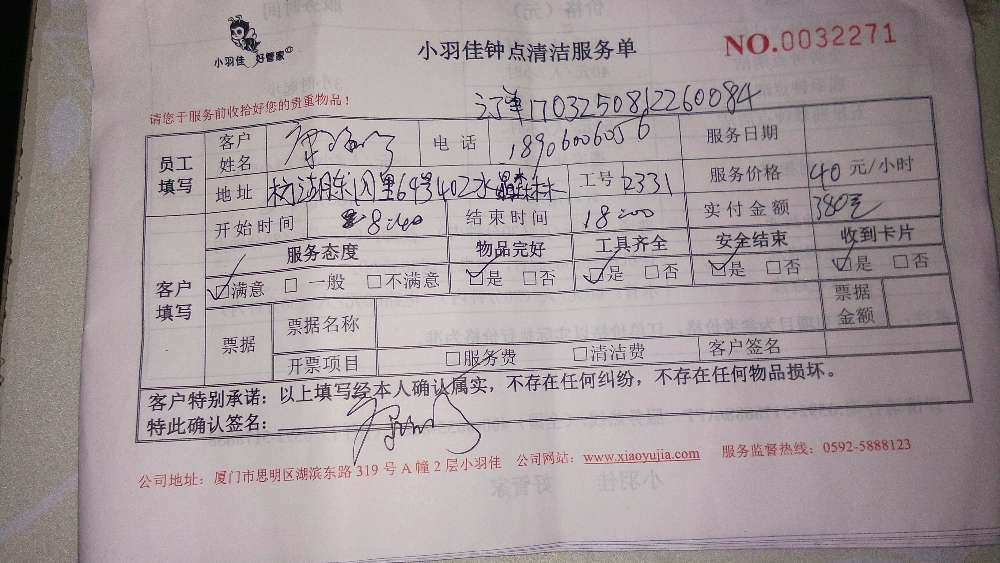 小羽佳 好管家
小羽佳钟点清洁服务单
NO.0032271
请您于服务前收拾好您的贵重物品！
订单1703250812260084
员工填写
客户姓名
电话 18906006056
服务日期
地址 402水晶森林
工号 2331
服务价格 40元/小时
开始时间 8:00
结束时间 18:00
实付金额 380元
客户填写
服务态度 物品完好 工具齐全 安全结束 收到卡片
☑满意 □一般 □不满意 ☑是 □否 ☑是 □否 ☑是 □否 ☑是 □否
票据
票据名称
票据金额
开票项目 □服务费 □清洁费 客户签名
客户特别承诺：以上填写经本人确认属实，不存在任何纠纷，不存在任何物品损坏。
特此确认签名：
公司地址：厦门市思明区湖滨东路 319 号 A 幢 2 层小羽佳 公司网站：www.xiaoyujia.com 服务监督热线：0592-5888123